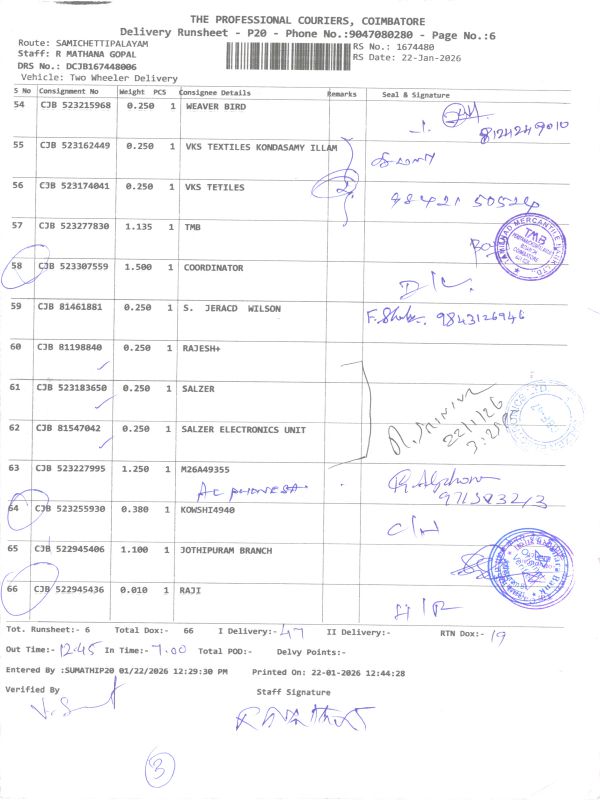 THE PROFESSIONAL COURIERS, COIMBATORE
Delivery Runsheet - P20 - Phone No.:9047080280 - Page No.:6
Route: SAMICHETTIPALAYAM
Staff: R MATHANA GOPAL
RS No.: 1674480
DRS No.: DCJB167448006
RS Date: 22-Jan-2026
Vehicle: Two Wheeler Delivery
S No Consignment No Weight PCS Consignee Details Remarks Seal & Signature
54 CJB 523215968 0.250 1 WEAVER BIRD
8124249010
55 CJB 523162449 0.250 1 VKS TEXTILES KONDASAMY ILLAM
56 CJB 523174041 0.250 1 VKS TETILES 2
98421 50524
57 CJB 523277830 1.135 1 TMB
TMB
58 CJB 523307559 1.500 1 COORDINATOR
D/C
59 CJB 81461881 0.250 1 S. JERACD WILSON
9843126946
60 CJB 81198840 0.250 1 RAJESH+
61 CJB 523183650 0.250 1 SALZER
22/1/26
62 CJB 81547042 0.250 1 SALZER ELECTRONICS UNIT
63 CJB 523227995 1.250 1 M26A49355
64 CJB 523255930 0.380 1 KOWSHI4940
65 CJB 522945406 1.100 1 JOTHIPURAM BRANCH
66 CJB 522945436 0.010 1 RAJI
Tot. Runsheet:- 6 Total Dox:- 66 I Delivery:- 47 II Delivery:- RTN Dox:- 19
Out Time:- 12.45 In Time:- 7.00 Total POD:- Delvy Points:-
Entered By :SUMATHIP20 01/22/2026 12:29:30 PM Printed On: 22-01-2026 12:44:28
Verified By Staff Signature
3